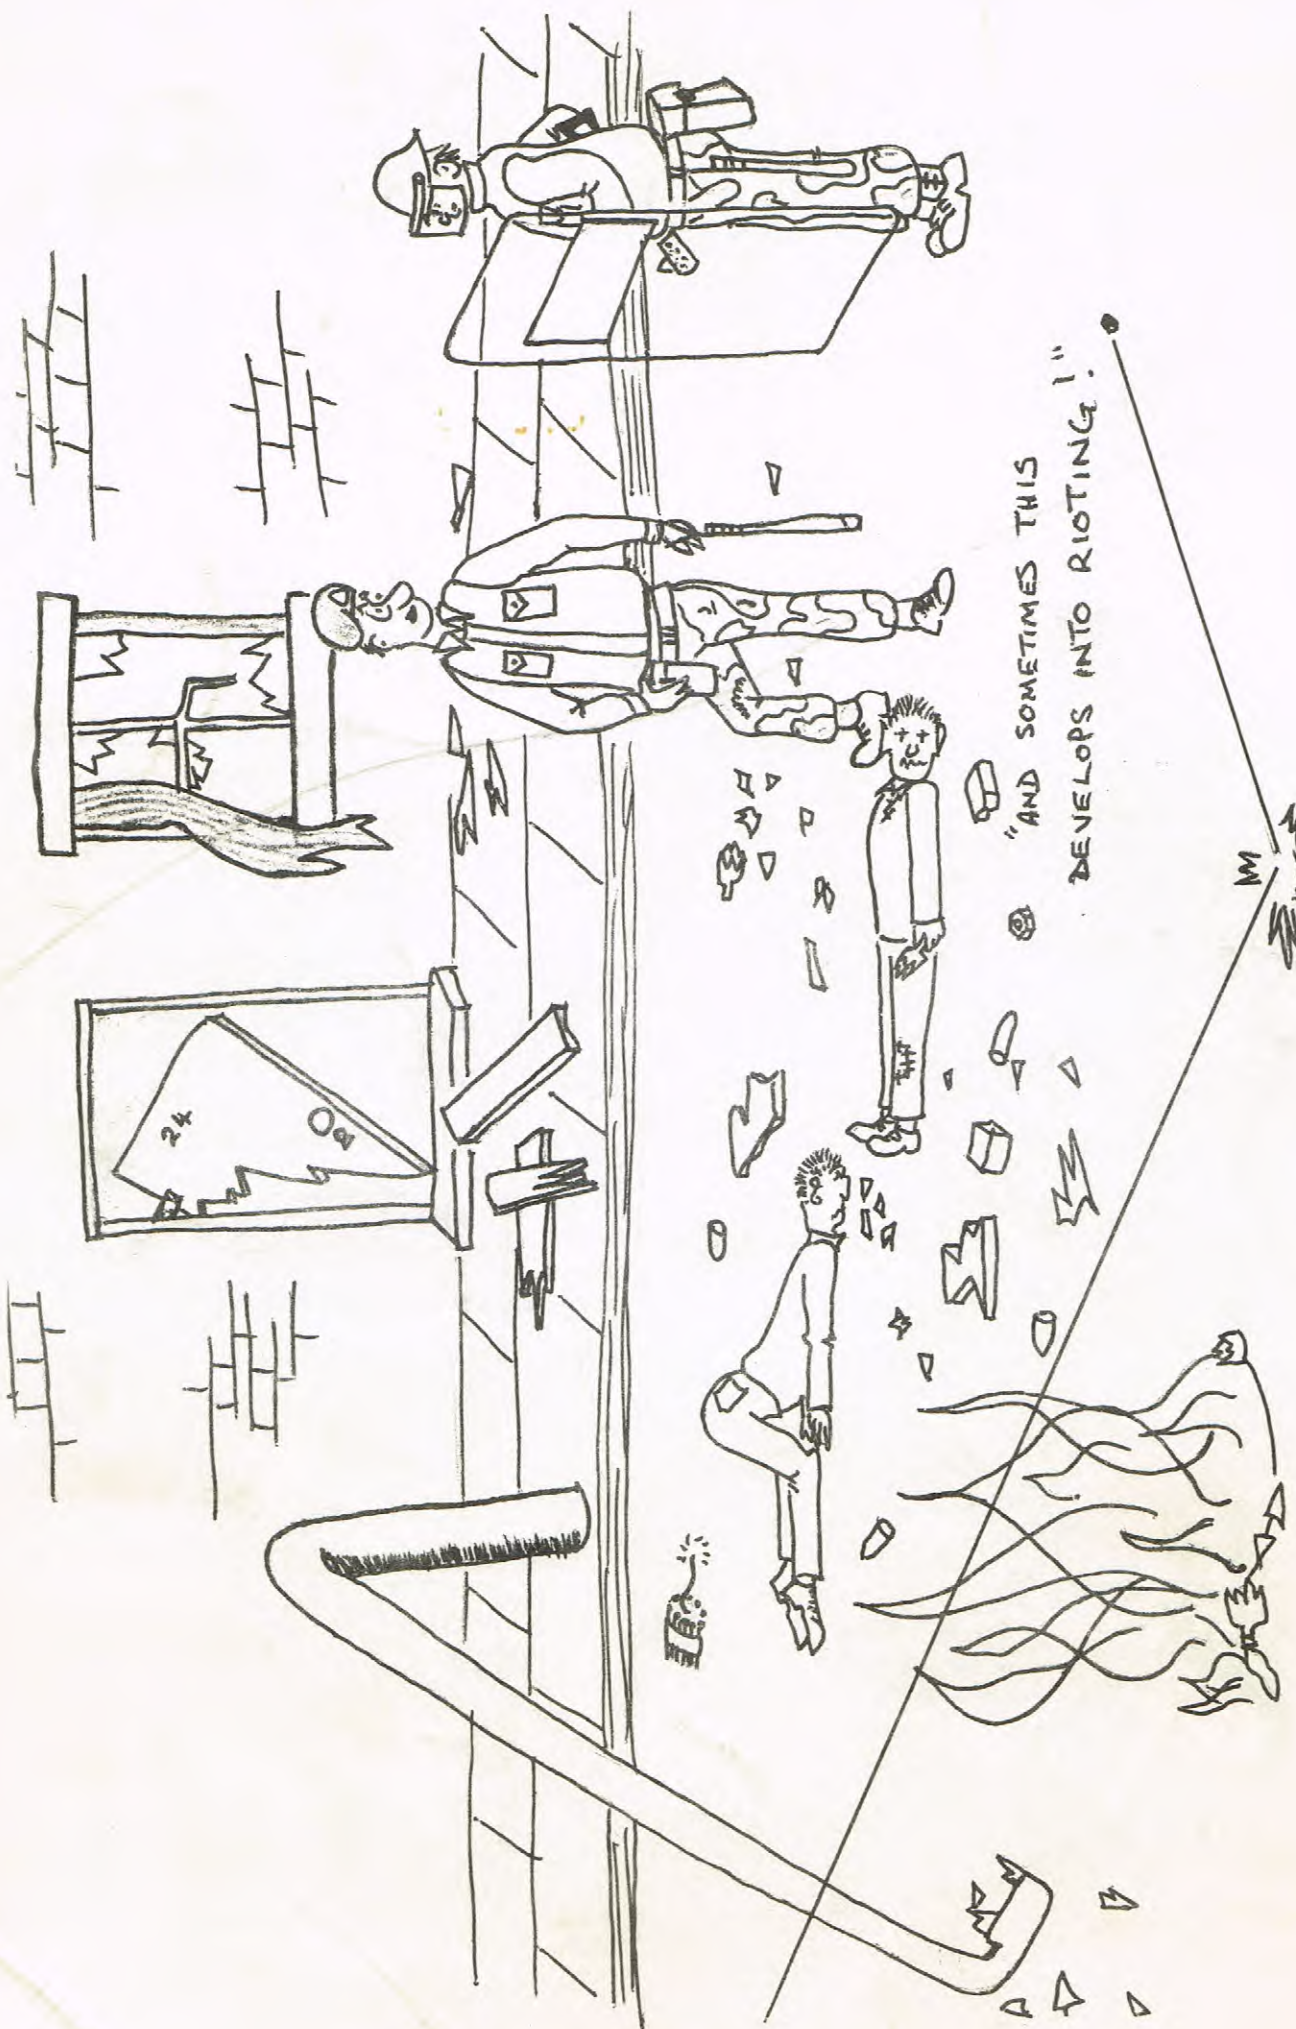 24
"AND SOMETIMES THIS
DEVELOPS INTO RIOTING!"